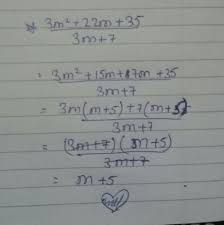 3m² + 22m + 35
3m + 7
= 3m² + 15m + 7m + 35
3m + 7
= 3m(m + 5) + 7(m + 5)
3m + 7
= (3m + 7) (m + 5)
3m + 7
= m + 5